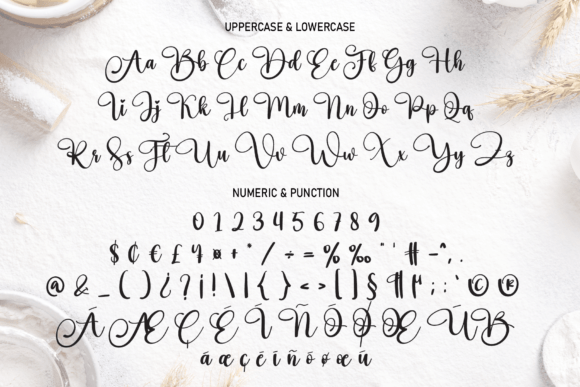 UPPERCASE & LOWERCASE
Aa Bb Cc Dd Ee Ff Gg Hh
Ii Jj Kk Ll Mm Nn Oo Pp Qq
Rr Ss Tt Uu Vv Ww Xx Yy Zz
NUMERIC & PUNCTION
0 1 2 3 4 5 6 7 8 9
$ ₵ € £ ¥ ¤ + * / ÷ = % ‰ " ' # – ^ , .
@ & _ ( ) ¿ ? ¡ ! \ | { } < > [ ] § ¶ µ ; : ` © ®
Á Æ Ç É Í Ñ Ó Ø Œ Ú ß
á æ ç é í ñ ó ø œ ú